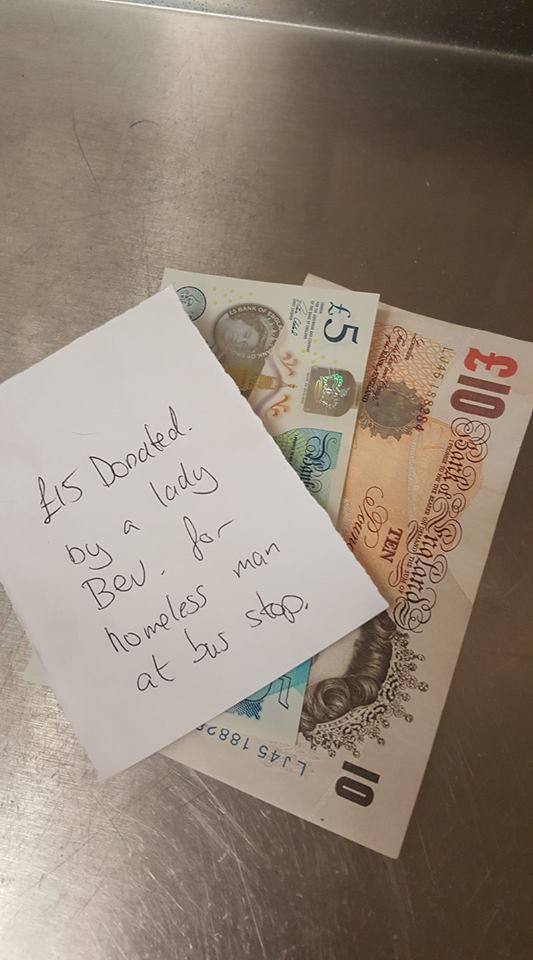 £15 Donated.
by a lady
Bev. for
homeless man
at bus stop.
£5
£5 BANK OF ENGLAND
£10
Bank of England
TEN
10